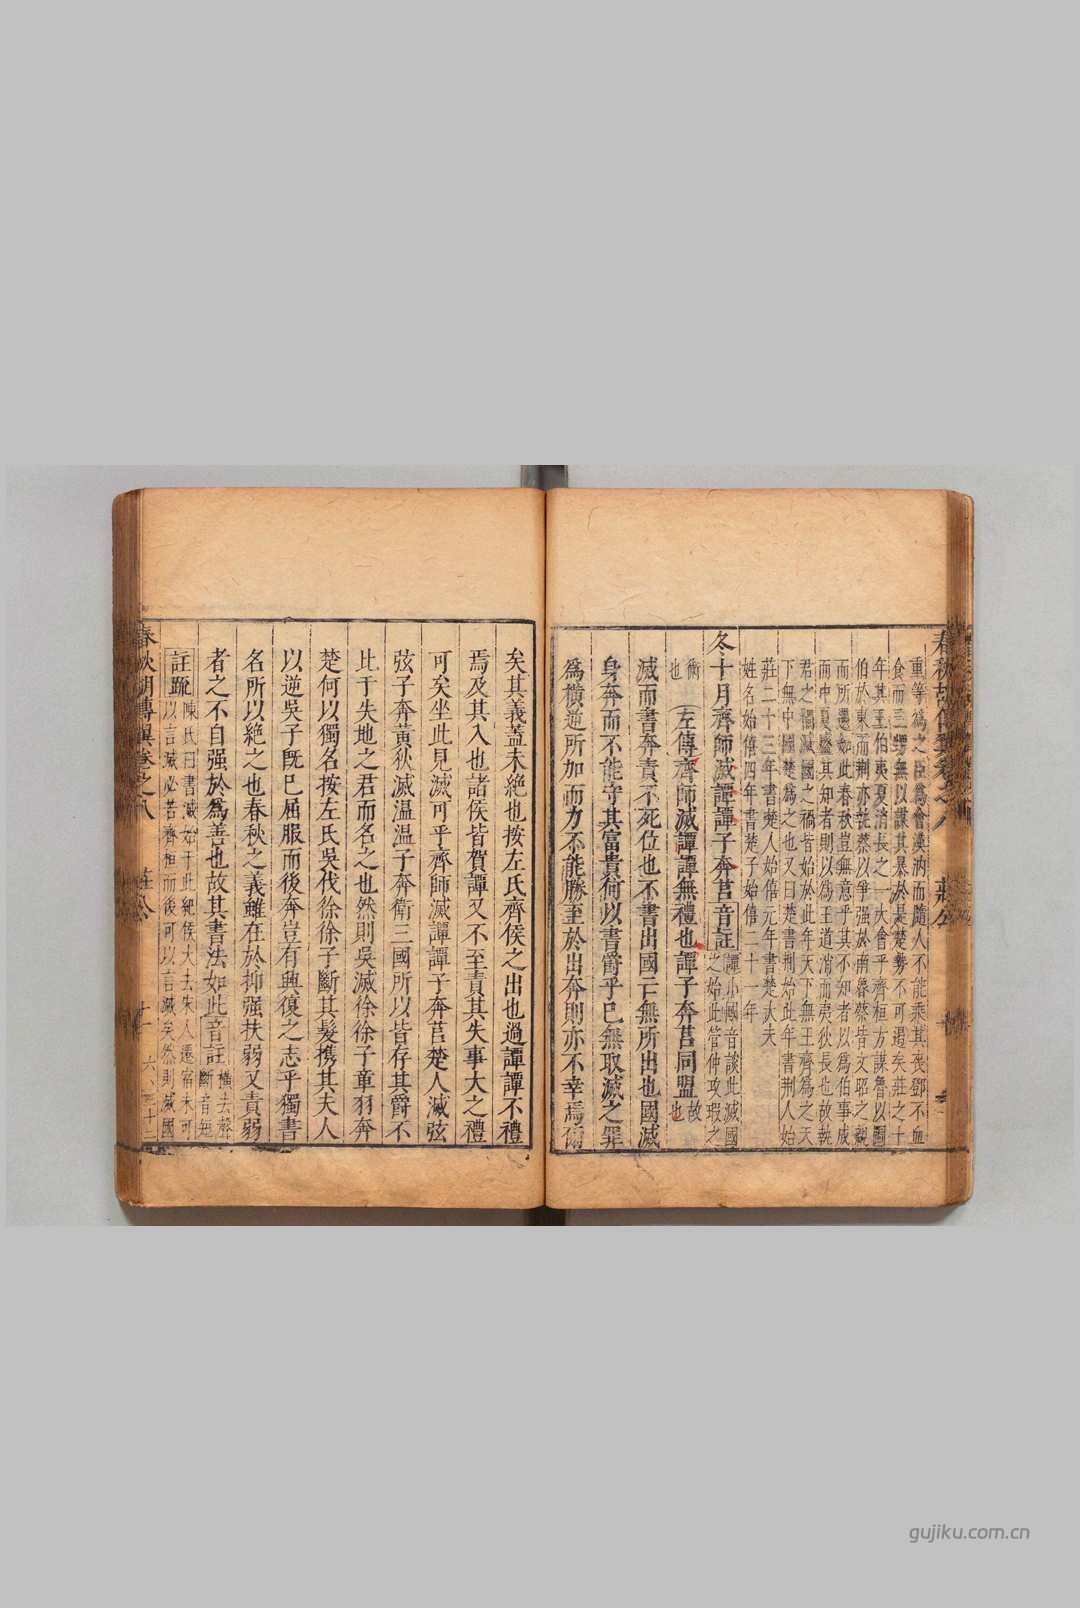 重等爲之臣爲會漢汭而隨人不能乘其喪鄧不血
食而三甥無以謀其暴於是楚勢不可遏矣莊之十
年其王伯夷夏消長之一大會乎齊桓方謀魯以圖
伯於東而荆亦詫蔡以爭强於南魯蔡皆文昭之親
而所遇如此春秋豈無意乎其不知者以爲伯事成
而中夏盛其知者則以爲王道消而夷狄長也故執
君之禍滅國之禍皆始於此年天下無王齊爲之天
下無中國楚爲之也又曰楚書荆始此年書荆人始
莊二十三年書楚人始僖元年書楚大夫
姓名始僖四年書楚子始僖二十一年
冬十月齊師滅譚譚子奔莒
音註
譚小國音談此滅國
之始此管仲攻瑕之
術
也
左傳齊師滅譚譚無禮也譚子奔莒同盟
故
也
滅而書奔責不死位也不書出國亡無所出也國滅
身奔而不能守其富貴何以書爵乎已無取滅之罪
爲橫逆所加而力不能勝至於出奔則亦不幸焉爾
矣其義蓋未絶也按左氏齊侯之出也過譚譚不禮
焉及其入也諸侯皆賀譚又不至責其失事大之禮
可矣坐此見滅可乎齊師滅譚譚子奔莒楚人滅弦
弦子奔黃狄滅温温子奔衛三國所以皆存其爵不
比于失地之君而名之也然則吳滅徐徐子章羽奔
楚何以獨名按左氏吳伐徐徐子斷其髮携其夫人
以逆吳子旣已屈服而後奔豈有興復之志乎獨書
名所以絶之也春秋之義雖在於抑强扶弱又責弱
者之不自强於爲善也故其書法如此
音註
橫去聲
斷音短
註䟽
陳氏曰書滅始于此紀侯大去朱人遷宿未可
以言滅必若齊桓而後可以言滅矣然則滅國
春秋胡傳翼卷之八 莊公 十一
gujiku.com.cn